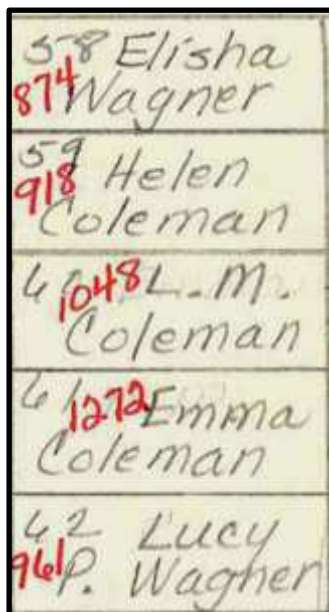 58 Elisha
874 Wagner
59 Helen
918
Coleman
1048 L. M.
Coleman
61 1272 Emma
Coleman
62 Lucy
961 P. Wagner